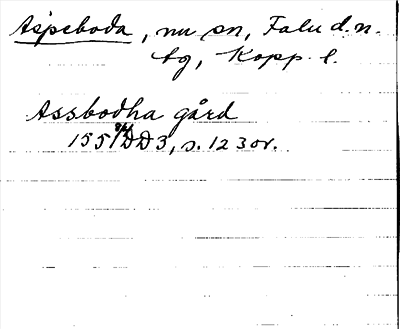 Aspeboda, nu sn, Falu d.n.
tg, Kopp. l.
Assbodha gård
1551 DD3, s. 123 or.